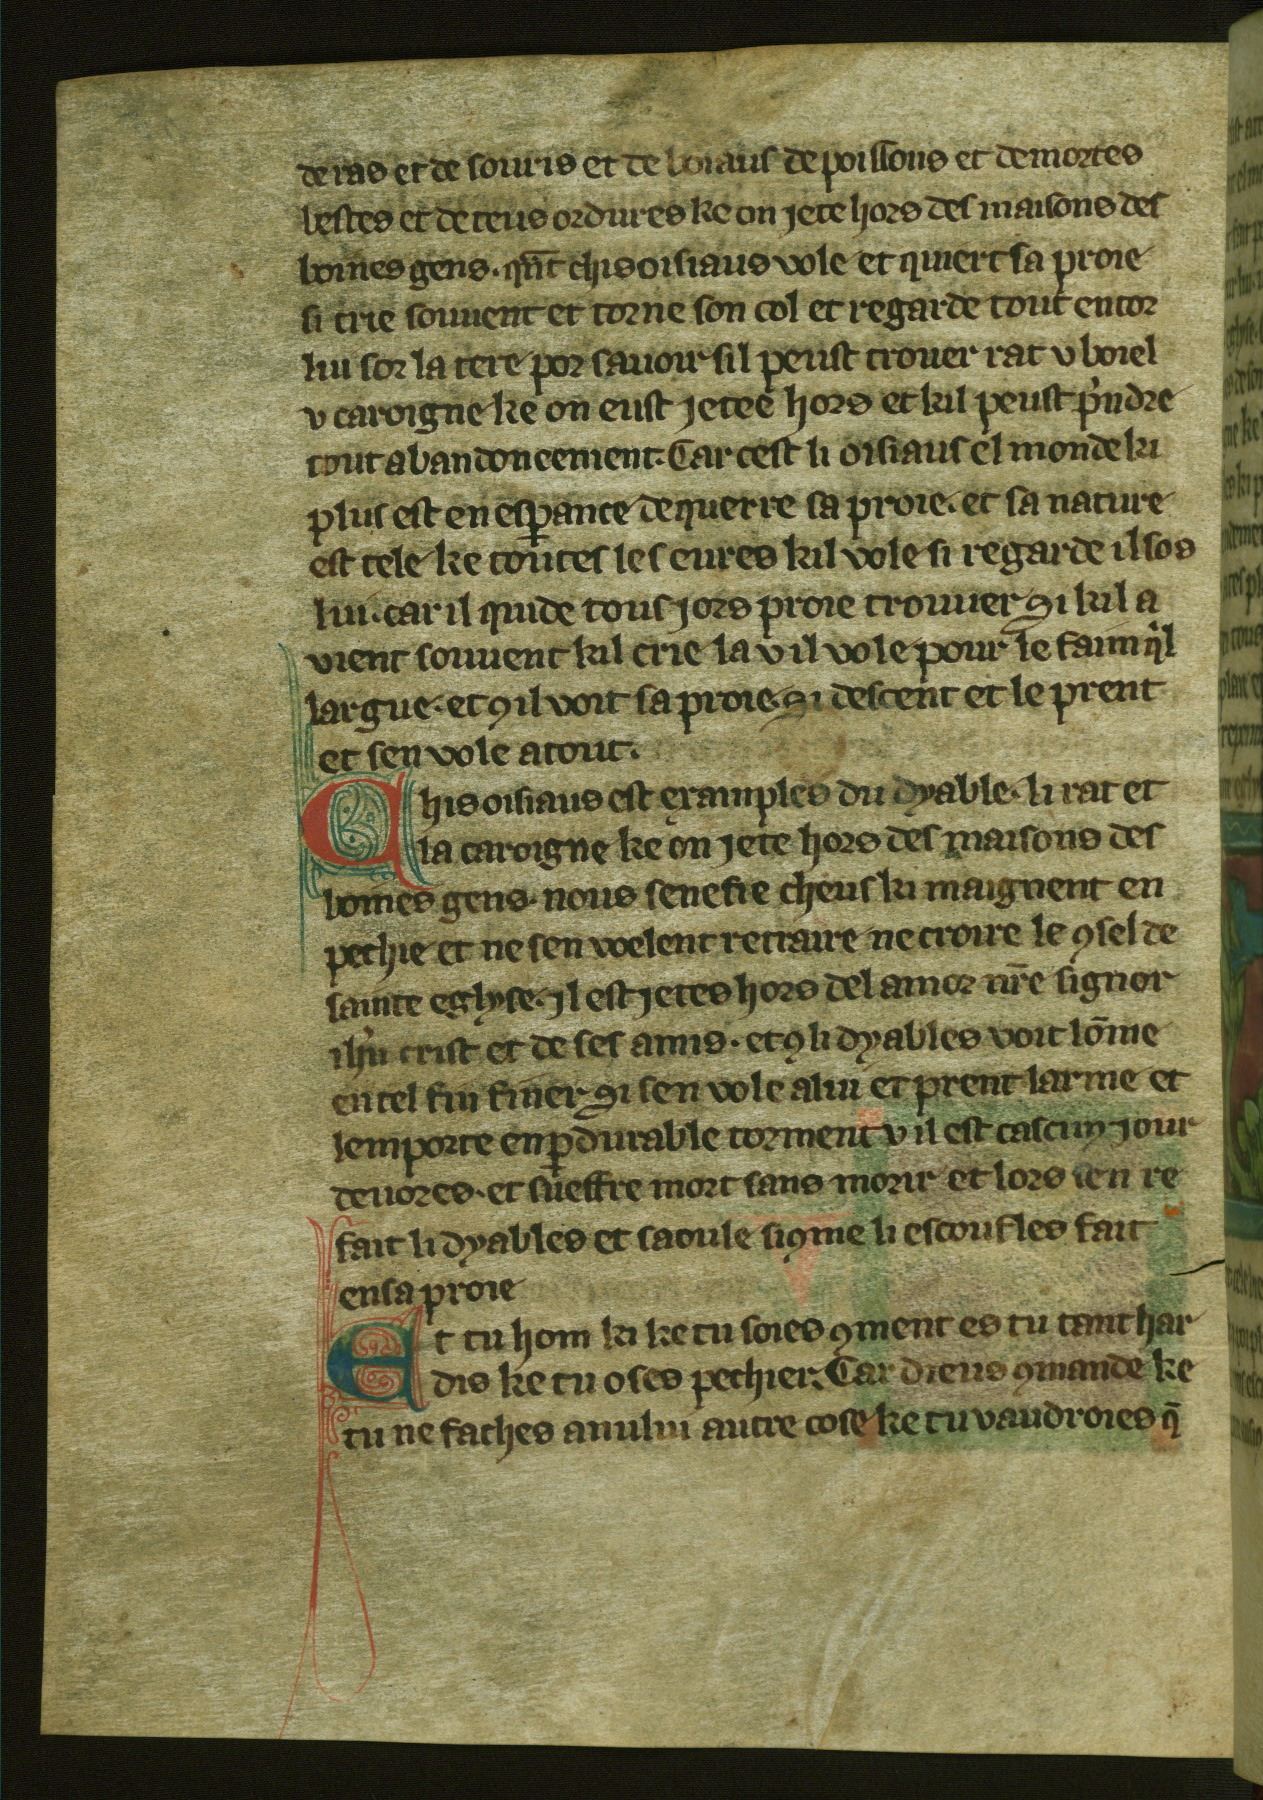 de ras et de souris et de boiaus de poissons et de mortes
bestes et de teus ordures ke on jete hors des maisons des
boines gens. qñt chis oisiaus vole et quiert sa proie
si crie souuent et torne son col et regarde tout entor
lui sor la tere por sauoir sil peust trouer rat v boiel
v caroigne ke on eust jetee hors et kil peust p̾ndre
tout abandoneement. Car cest li oisiaus el monde ki
plus est en esꝑance de querre sa proie. et sa nature
est tele ke toutes les eures kil vole si regarde il sos
lui. car il quide tous jors proie trouuer. Si kil a
vient souuent kil crie la v il vole pour le faim q̃l
largue. et ꝯ il voit sa proie. Si descent et le prent
et sen vole atout.
Chis oisiaus est examples du dyable. li rat et
la caroigne ke on jete hors des maisons des
boines gens. nous senefie cheus ki maignent en
pechie et ne sen voelent retraire ne croire le ꝯsel de
sainte eglyse. jl est jetes hors del amor nr̄e signor
ihū crist et de ses amis. et ꝯ li dyables voit lōme
en tel fin finer. Si sen vole a lui et prent larme et
lemporte en ꝑdurable torment v il est cascun jour
deuores. et sueffre mort sans morir et lors sen re
fait li dyables et saoule si ꝯme li escoufles fait
en sa proie
Et tu hom ki ke tu soies ꝯment es tu tant har
dis ke tu oses pechier. Car dieus ꝯmande ke
tu ne faches a nului autre cose ke tu vaudroies q̄